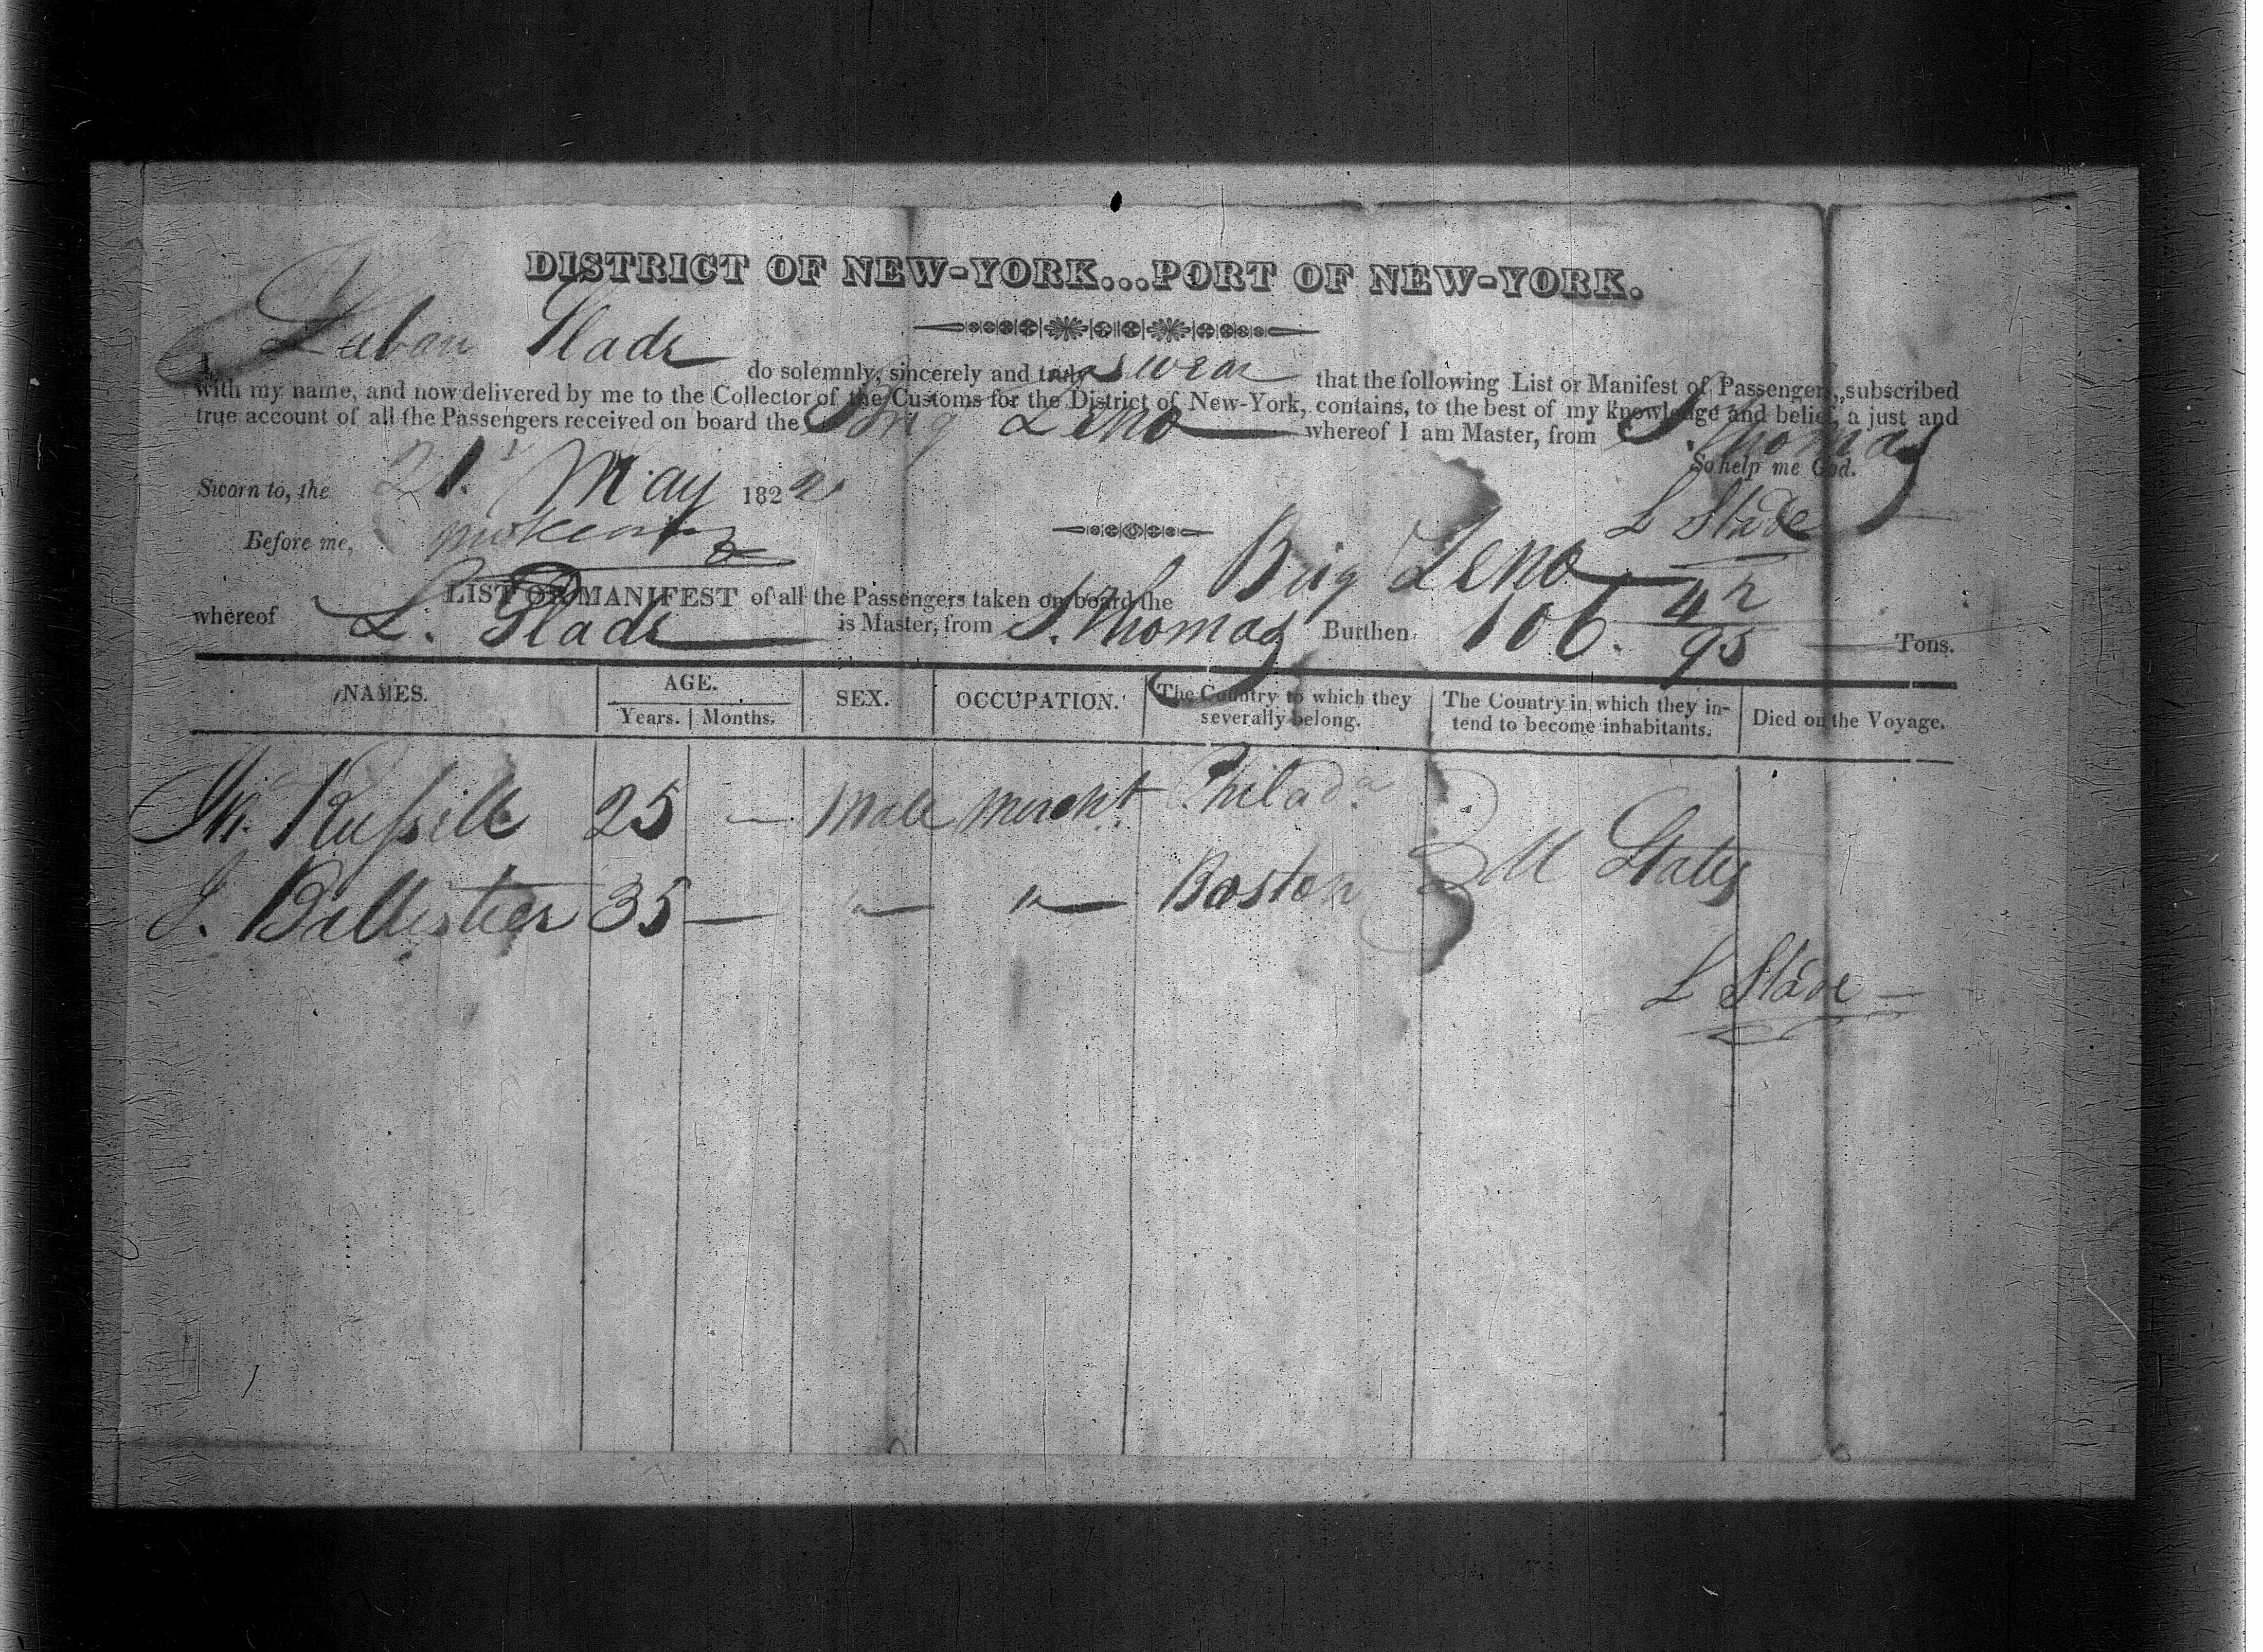 DISTRICT OF NEW-YORK...PORT OF NEW-YORK.
I Laban Slade do solemnly, sincerely and truly swear that the following List or Manifest of Passengers, subscribed
with my name, and now delivered by me to the Collector of the Customs for the District of New-York, contains, to the best of my knowledge and belief, a just and
true account of all the Passengers received on board the Brig Zeno whereof I am Master, from St. Thomas
So help me God.
Sworn to, the 21st May 1822
L Slade
Before me,
LIST OR MANIFEST of all the Passengers taken on board the Brig Zeno
whereof L. Slade is Master, from St. Thomas Burthen 106. 42/95 Tons.
NAMES. AGE. SEX. OCCUPATION. The Country to which they severally belong. The Country in which they intend to become inhabitants. Died on the Voyage.
Years. Months.
Russell 25 — Male Mercht Philada
J. Ballestier 35 — " " Boston U States
L Slade